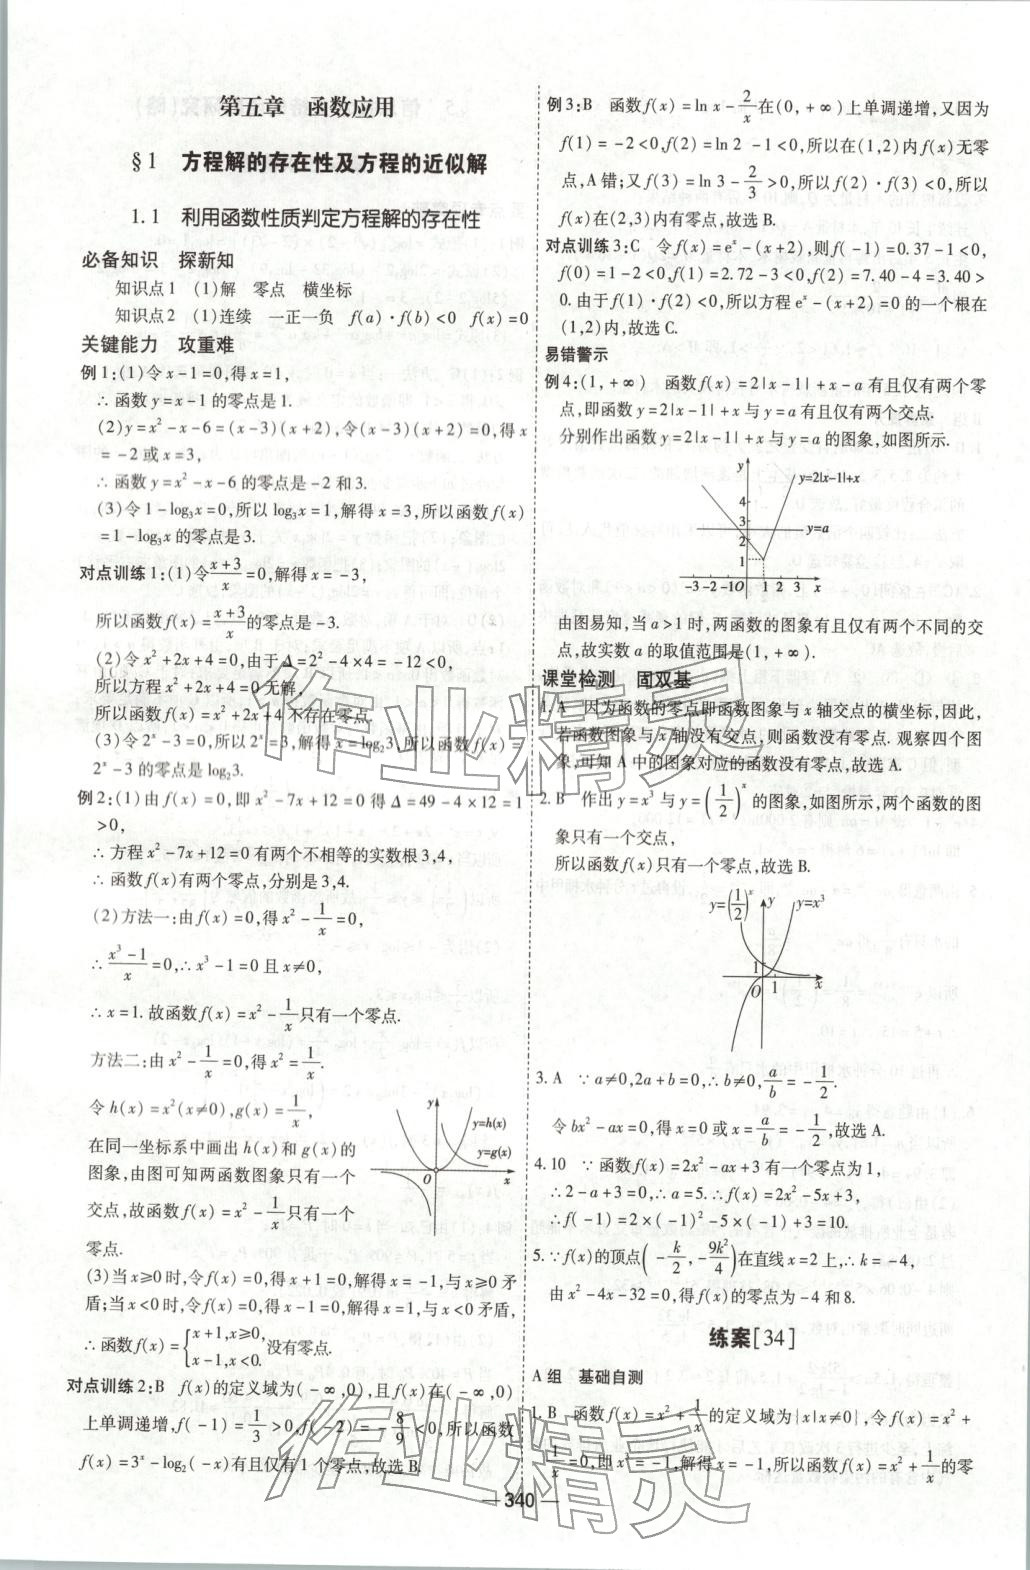 第五章　函数应用
§1　方程解的存在性及方程的近似解
1.1　利用函数性质判定方程解的存在性
必备知识　探新知
知识点1　(1)解　零点　横坐标
知识点2　(1)连续　一正一负　f(a)·f(b)<0　f(x)=0
关键能力　攻重难
例1:(1)令x-1=0,得x=1,
∴函数y=x-1的零点是1.
(2)y=x²-x-6=(x-3)(x+2),令(x-3)(x+2)=0,得x
=-2或x=3,
∴函数y=x²-x-6的零点是-2和3.
(3)令1-log₃x=0,所以log₃x=1,解得x=3,所以函数f(x)
=1-log₃x的零点是3.
对点训练1:(1)令(x+3)/x=0,解得x=-3,
所以函数f(x)=(x+3)/x的零点是-3.
(2)令x²+2x+4=0,由于Δ=2²-4×4=-12<0,
所以方程x²+2x+4=0无解,
所以函数f(x)=x²+2x+4不存在零点.
(3)令2ˣ-3=0,所以2ˣ=3,解得x=log₂3,所以函数f(x)=
2ˣ-3的零点是log₂3.
例2:(1)由f(x)=0,即x²-7x+12=0得Δ=49-4×12=1
>0,
∴方程x²-7x+12=0有两个不相等的实数根3,4,
∴函数f(x)有两个零点,分别是3,4.
(2)方法一:由f(x)=0,得x²-1/x=0,
∴(x³-1)/x=0,∴x³-1=0且x≠0,
∴x=1.故函数f(x)=x²-1/x只有一个零点.
方法二:由x²-1/x=0,得x²=1/x,
令h(x)=x²(x≠0),g(x)=1/x,
在同一坐标系中画出h(x)和g(x)的
图象,由图可知两函数图象只有一个
交点,故函数f(x)=x²-1/x只有一个
零点.
y
y=h(x)
y=g(x)
O
x
(3)当x≥0时,令f(x)=0,得x+1=0,解得x=-1,与x≥0矛
盾;当x<0时,令f(x)=0,得x-1=0,解得x=1,与x<0矛盾,
∴函数f(x)={x+1,x≥0,x-1,x<0没有零点.
对点训练2:B　f(x)的定义域为(-∞,0),且f(x)在(-∞,0)
上单调递增,f(-1)=1/3>0,f(-2)=-8/9<0,所以函数
f(x)=3ˣ-log₂(-x)有且仅有1个零点,故选B.
例3:B　函数f(x)=ln x-2/x在(0,+∞)上单调递增,又因为
f(1)=-2<0,f(2)=ln 2-1<0,所以在(1,2)内f(x)无零
点,A错;又f(3)=ln 3-2/3>0,所以f(2)·f(3)<0,所以
f(x)在(2,3)内有零点,故选B.
对点训练3:C　令f(x)=eˣ-(x+2),则f(-1)=0.37-1<0,
f(0)=1-2<0,f(1)=2.72-3<0,f(2)=7.40-4=3.40>
0.由于f(1)·f(2)<0,所以方程eˣ-(x+2)=0的一个根在
(1,2)内,故选C.
易错警示
例4:(1,+∞)　函数f(x)=2|x-1|+x-a有且仅有两个零
点,即函数y=2|x-1|+x与y=a有且仅有两个交点.
分别作出函数y=2|x-1|+x与y=a的图象,如图所示.
y
y=2|x-1|+x
4
3
2
1
y=a
-3-2-1O 1 2 3　x
由图易知,当a>1时,两函数的图象有且仅有两个不同的交
点,故实数a的取值范围是(1,+∞).
课堂检测　固双基
1.A　因为函数的零点即函数图象与x轴交点的横坐标,因此,
若函数图象与x轴没有交点,则函数没有零点.观察四个图
象,可知A中的图象对应的函数没有零点,故选A.
2.B　作出y=x³与y=(1/2)ˣ的图象,如图所示,两个函数的图
象只有一个交点,
所以函数f(x)只有一个零点,故选B.
y=(1/2)ˣ
y
y=x³
1
O
1
x
3.A　∵a≠0,2a+b=0,∴b≠0,a/b=-1/2.
令bx²-ax=0,得x=0或x=a/b=-1/2,故选A.
4.10　∵函数f(x)=2x²-ax+3有一个零点为1,
∴2-a+3=0,∴a=5.∴f(x)=2x²-5x+3,
∴f(-1)=2×(-1)²-5×(-1)+3=10.
5.∵f(x)的顶点(-k/2,-9k²/4)在直线x=2上,∴k=-4,
由x²-4x-32=0,得f(x)的零点为-4和8.
练案[34]
A组　基础自测
1.B　函数f(x)=x²+1/x的定义域为{x|x≠0},令f(x)=x²+
1/x=0,即x³=-1,解得x=-1,所以函数f(x)=x²+1/x的零
— 340 —
作业精灵
作业精灵